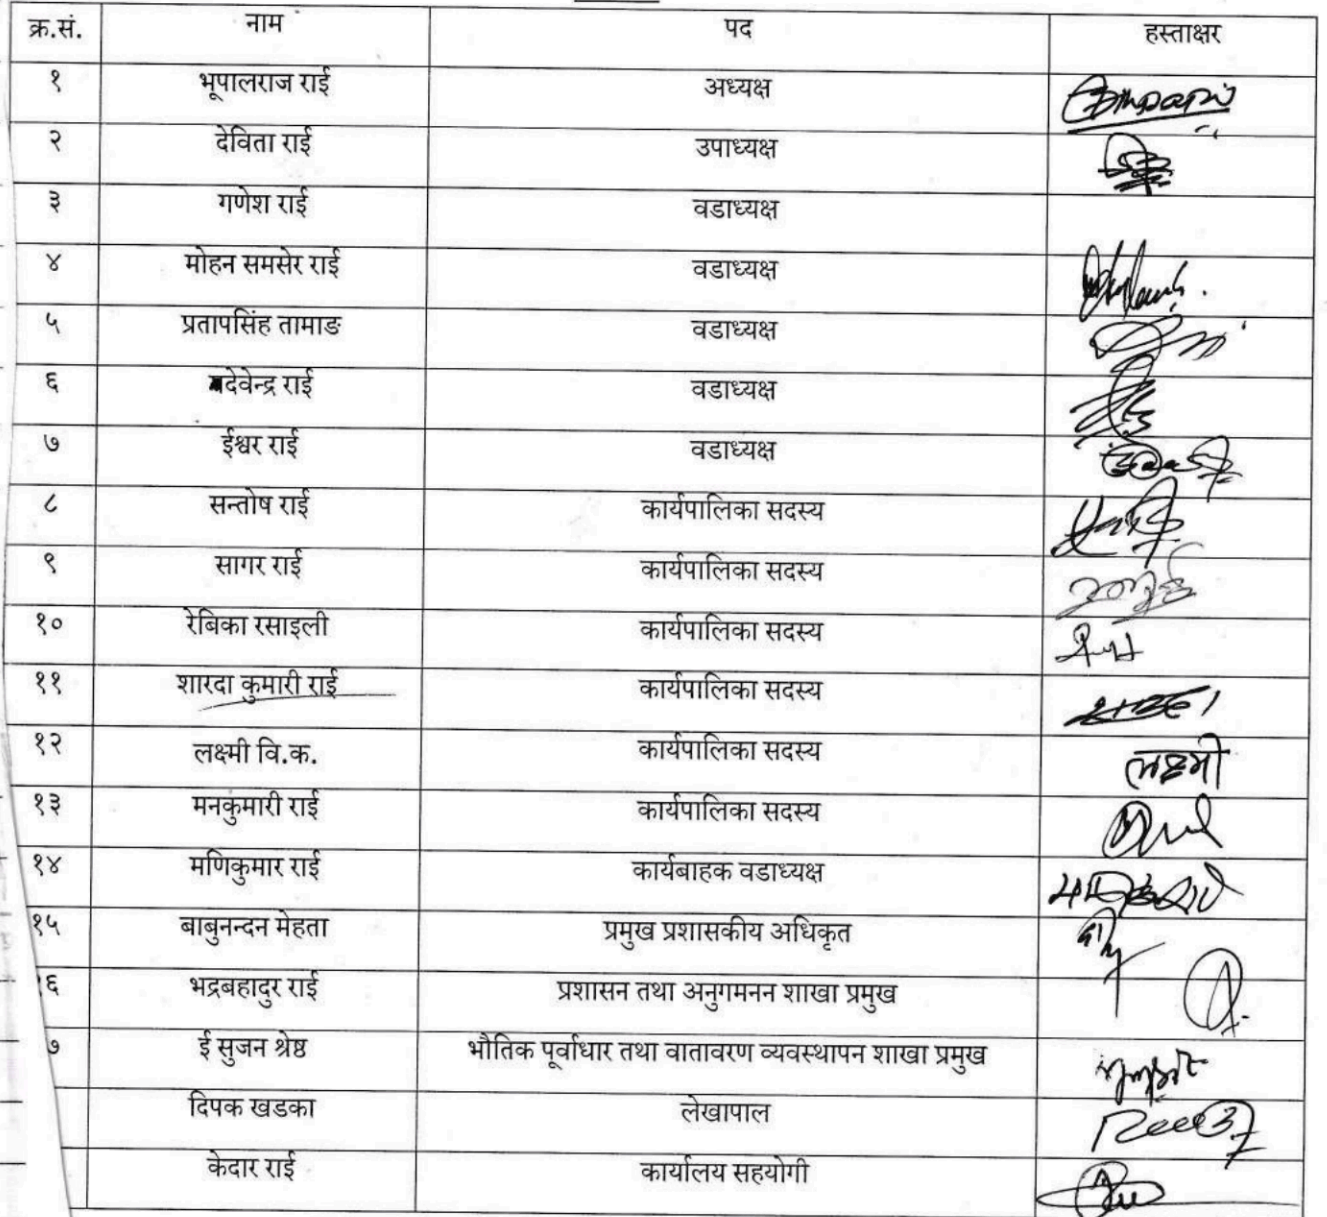 क्र.सं. नाम पद हस्ताक्षर
१ भूपालराज राई अध्यक्ष
२ देविता राई उपाध्यक्ष
३ गणेश राई वडाध्यक्ष
४ मोहन समसेर राई वडाध्यक्ष
५ प्रतापसिंह तामाङ वडाध्यक्ष
६ देवेन्द्र राई वडाध्यक्ष
७ ईश्वर राई वडाध्यक्ष
८ सन्तोष राई कार्यपालिका सदस्य
९ सागर राई कार्यपालिका सदस्य
१० रेबिका रसाइली कार्यपालिका सदस्य
११ शारदा कुमारी राई कार्यपालिका सदस्य
१२ लक्ष्मी वि.क. कार्यपालिका सदस्य लक्ष्मी
१३ मनकुमारी राई कार्यपालिका सदस्य
१४ मणिकुमार राई कार्यबाहक वडाध्यक्ष
१५ बाबुनन्दन मेहता प्रमुख प्रशासकीय अधिकृत
६ भद्रबहादुर राई प्रशासन तथा अनुगमनन शाखा प्रमुख
७ ई सुजन श्रेष्ठ भौतिक पूर्वाधार तथा वातावरण व्यवस्थापन शाखा प्रमुख
दिपक खडका लेखापाल
केदार राई कार्यालय सहयोगी